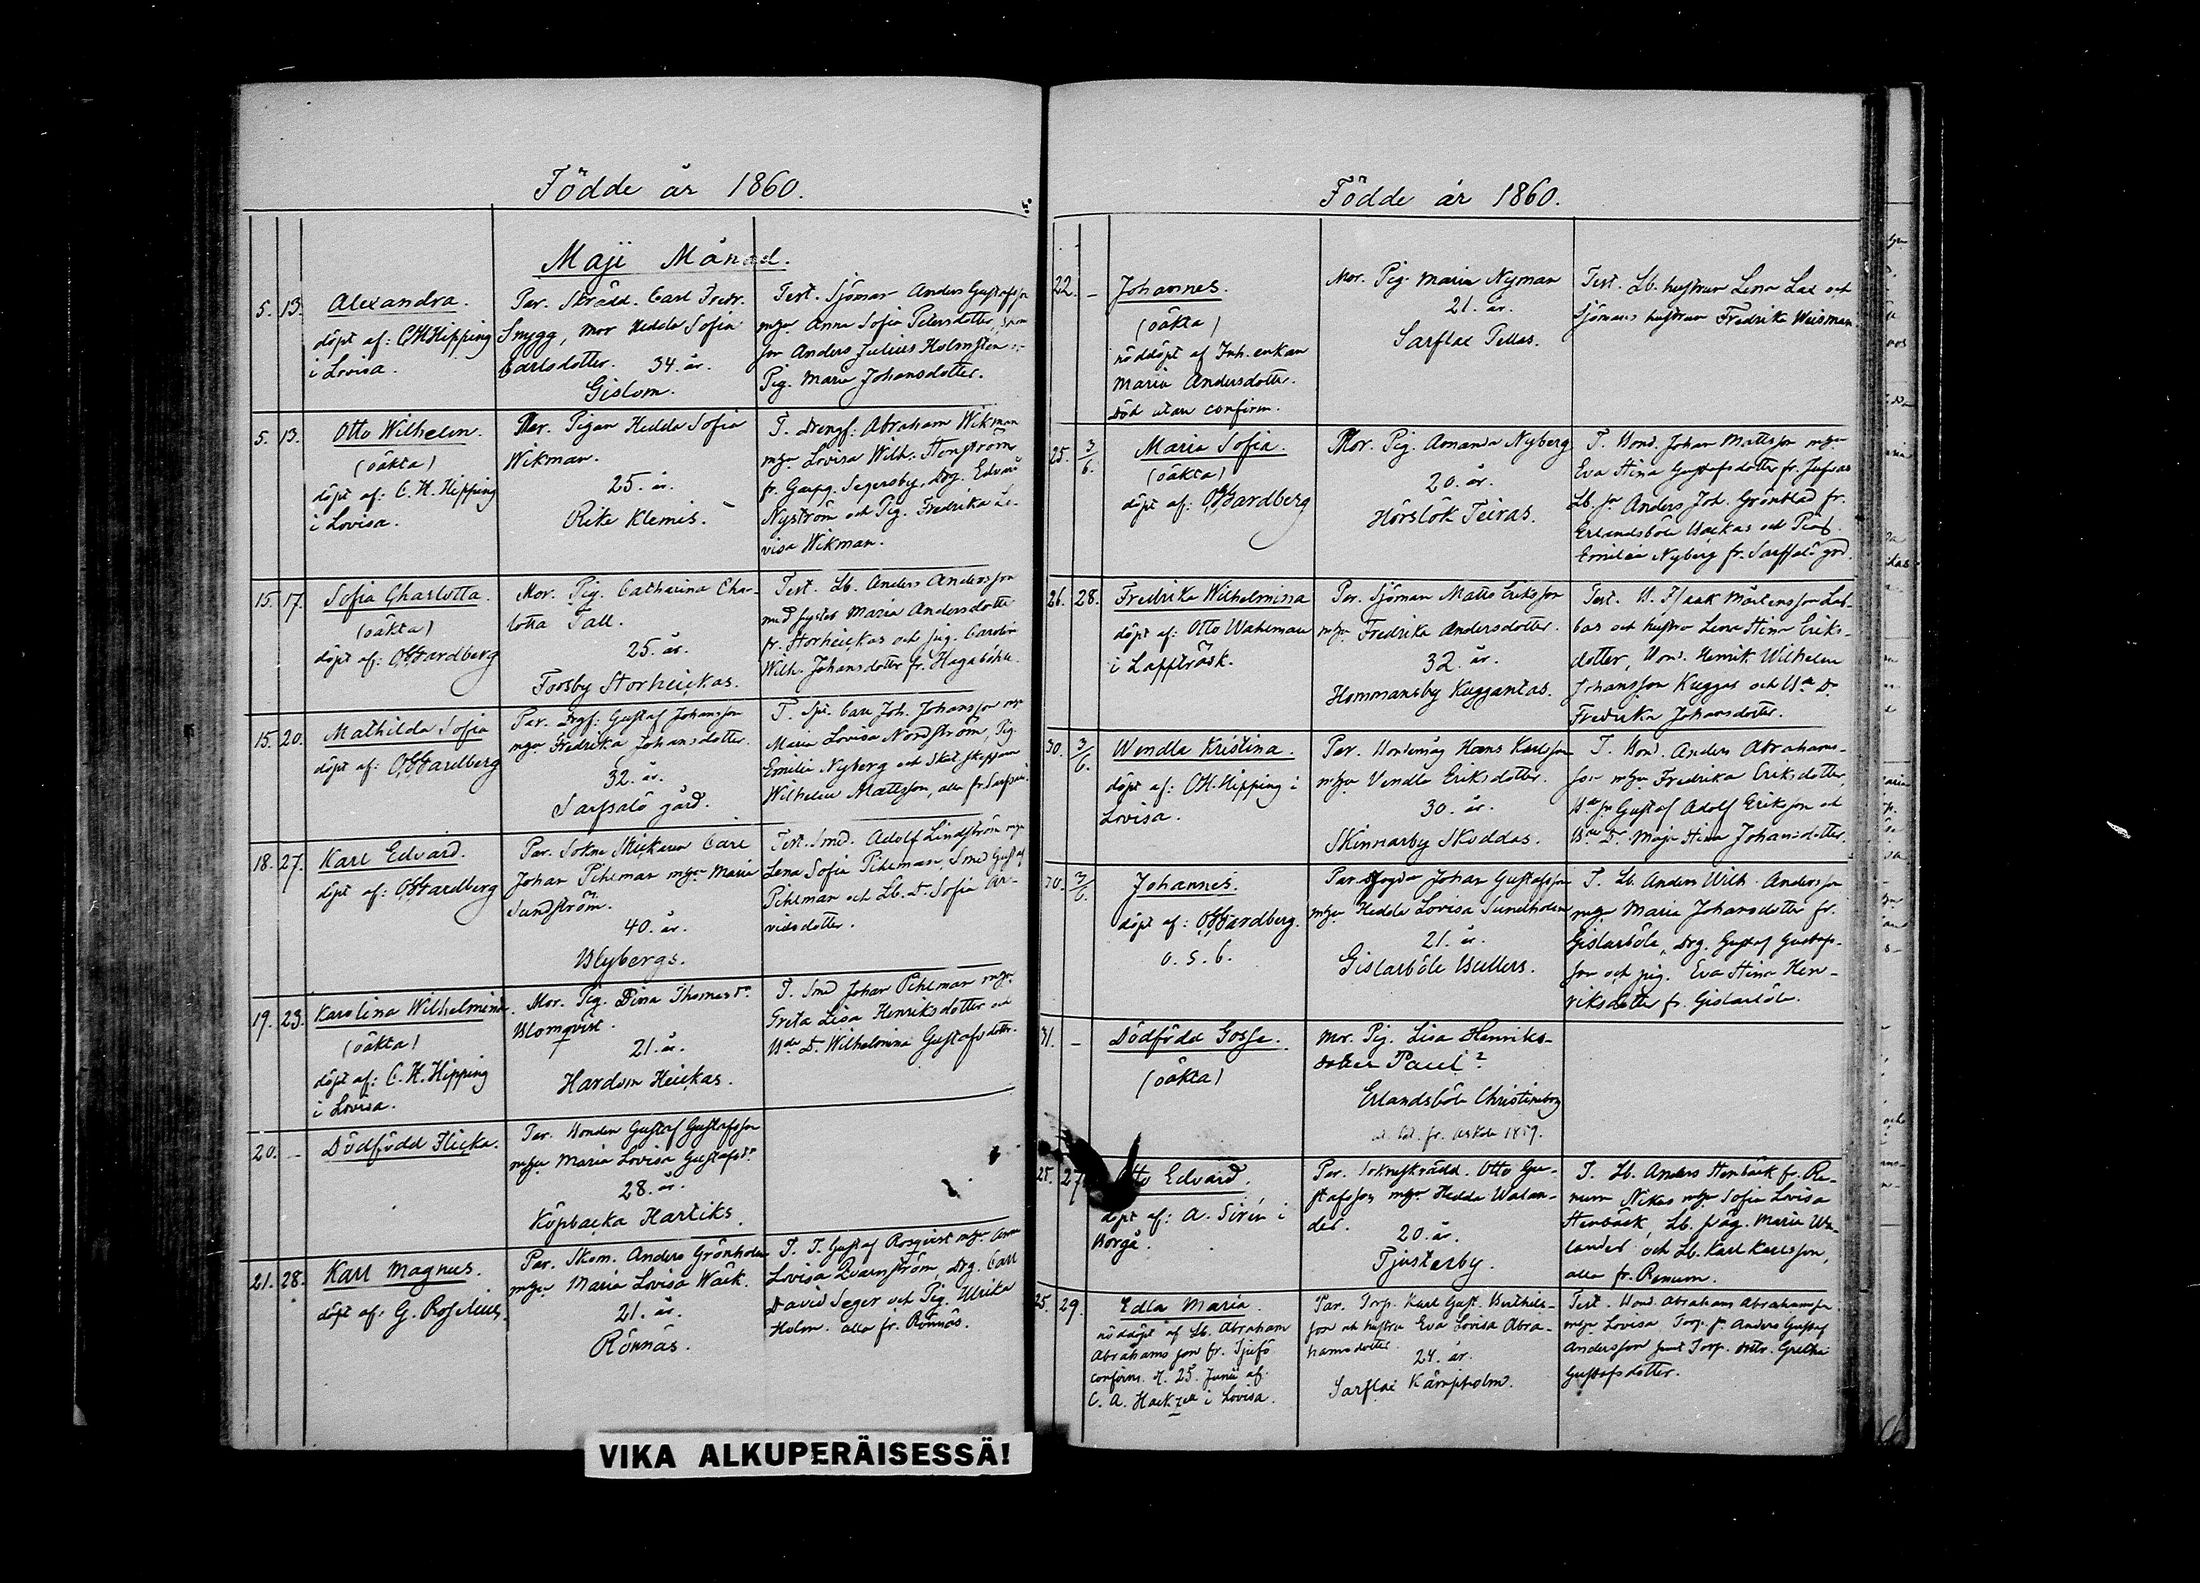 Födde år 1860.
Maji Månad.
5. 13. Alexandra.
döpt af: C.H. Hipping
i Lovisa.
Par. Skrädd. Carl Fredr.
Snygg, mor Hedda Sofia
Carlsdotter. 34. år.
Gislom.
Test. Sjöman Anders Gustafsson
mhu Anna Sofia Petersdotter,
son Anders Julius Holmsten
Pig. Maria Johansdotter.
5. 13. Otto Wilhelm.
(oäkta)
döpt af: C. H. Hipping
i Lovisa.
Mor. Pigan Hedda Sofia
Wikman.
25. år.
Rike Klemis.
T. Drengf: Abraham Wikman
mhu Lovisa Wilh.
fr. Segersby, Drg. Edvard
Nyström och Pig. Fredrika Lo-
visa Wikman.
15. 17. Sofia Charlotta.
(oäkta)
döpt af: Gardberg
Mor. Pig. Catharina Char-
lotta Tall.
25. år.
Forsby Storheickas.
Test. Lb. Anders Andersson
med syster Maria Andersdotter
fr. Storheickas och pig. Carolin
Wilh. Johansdotter fr. Hagaböhle.
15. 20. Mathilda Sofia
döpt af: Gardberg
Par. Drgf: Gustaf Johansson
mhu Fredrika Johansdotter.
32. år.
Sarfsalö gård.
T. Carl Joh. Johansson mhu
Maria Lovisa Nordström, Pig.
Emilia Nyberg och
Wilhelm Mattsson, alla fr.
18. 27. Karl Edvard.
döpt af: Gardberg
Par. Sokne Skickaren Carl
Johan Pihlman mhu Maria
Sundström.
40. år.
Blybergs.
Test. Smed. Adolf Lindström mhu
Lena Sofia Pihlman Smed Gustaf
Pihlman och Lb. D. Sofia Ar-
vidsdotter.
19. 23. Karolina Wilhelmina.
(oäkta)
döpt af: C. H. Hipping
i Lovisa.
Mor. Pig. Dina Thomasdr
Blomqvist.
21. år.
Hardom Heickas.
T. Smed Johan Pihlman mhu
Greta Lisa Henriksdotter och
D. Wilhelmina Gustafsdotter.
20. - Dödfödd Flicka.
Par. Bonden Gustaf Gustafsson
mhu Maria Lovisa Gustafsdr
28. år.
Köpbacka Hartiks.
21. 28. Karl Magnus.
döpt af: G. Roselius.
Par. Skom. Anders Grönholm
mhu Maria Lovisa Wäck.
21. år.
Rönnäs.
T. T. Gustaf Rosqvist mhu Anna
Lovisa Qvarnström, Drg. Carl
David Seger och Pig. Ulrika
Holm. alla fr. Rönnäs.
Födde år 1860.
22. - Johannes.
(oäkta)
nöddöpt af Inh. enkan
Maria Andersdotter.
Död utan confirm.
Mor. Pig. Maria Nyman
21. år.
Sarflax Pellas.
Test. Lb. hustrun Lena Lax och
Sjömans hustrun Fredrika Weisman
25. 3/6. Maria Sofia.
(oäkta)
döpt af: Gardberg
Mor. Pig. Amanda Nyberg
20. år.
Hörslök Teiras.
T. Bond. Johan Mattsson mhu
Eva Stina Gustafsdotter fr.
Lb. sn Anders Joh. Grönblad fr.
Erlandsböle Backas och
Emilia Nyberg fr. Sarfsalö grd.
26. 28. Fredrika Wilhelmina
döpt af: Otto Wahlman
i Lappträsk.
Par. Sjöman Matts Eriksson
mhu Fredrika Andersdotter.
32. år.
Hommansby Kuggantas.
Test. B. Isaak Mårtensson Lab-
bas och hustru Lena Stina Eriks-
dotter, Bond. Henrik Wilhelm
Johansson Kuggas och
Fredrika Johansdotter.
30. 3/6 Wendla Kristina.
döpt af: C.H. Hipping i
Lovisa.
Par. Bondemåg Hans Karlsson
mhu Vendla Eriksdotter.
30. år.
Skinnarby Skeddas.
T. Bond. Anders Abrahams-
son mhu Fredrika Eriksdotter,
Gustaf Adolf Eriksson och
Maja Stina Johansdotter.
30. 3/6. Johannes.
döpt af: Gardberg.
o. s. b.
Par. Fogden Johan Gustafsson
mhu Hedda Lovisa Sundholm
21. år.
Gislarböle Bullers.
T. Lb. Anders Wilh. Andersson
mhu Maria Johansdotter fr.
Gislarböle, Drg. Gustaf Gustafs-
son och pig. Eva Stina Hen-
riksdotter fr. Gislarböle.
31. - Dödfödd Gosse.
(oäkta)
Mor. Pig. Lisa Henriks-
dotter Paul?
Erlandsböle Christineborg
fr. Askola 1859.
25. 27 Otto Edvard.
döpt af: A. Sirén i
Borgå.
Par. Sokneskrädd. Otto Gu-
stafsson mhu Hedda Walan-
der.
20. år.
Tjusterby.
T. Lb. Anders Stenbäck fr. Re-
num Nikas mhu Sofia Lovisa
Stenbäck, Lb. pig. Maria Wa-
lander och Lb. Karl Karlsson,
alla fr. Renum.
25. 29. Edla Maria.
nöddöpt af Lb. Abraham
Abrahamsson fr. Tjufö
confirm. d. 25. Junii af
C. A. Hackzell i Lovisa.
Par. Torp. Karl Gust. Berthels-
son och hustru Eva Lovisa Abra-
hamsdotter.
24. år.
Sarflax Kämpholm.
Test. Bond. Abraham Abrahamsson
mhu Lovisa, Torp. sn Anders Gustaf
Andersson samt Torp. dottr. Gretha
Gustafsdotter.
VIKA ALKUPERÄISESSÄ!